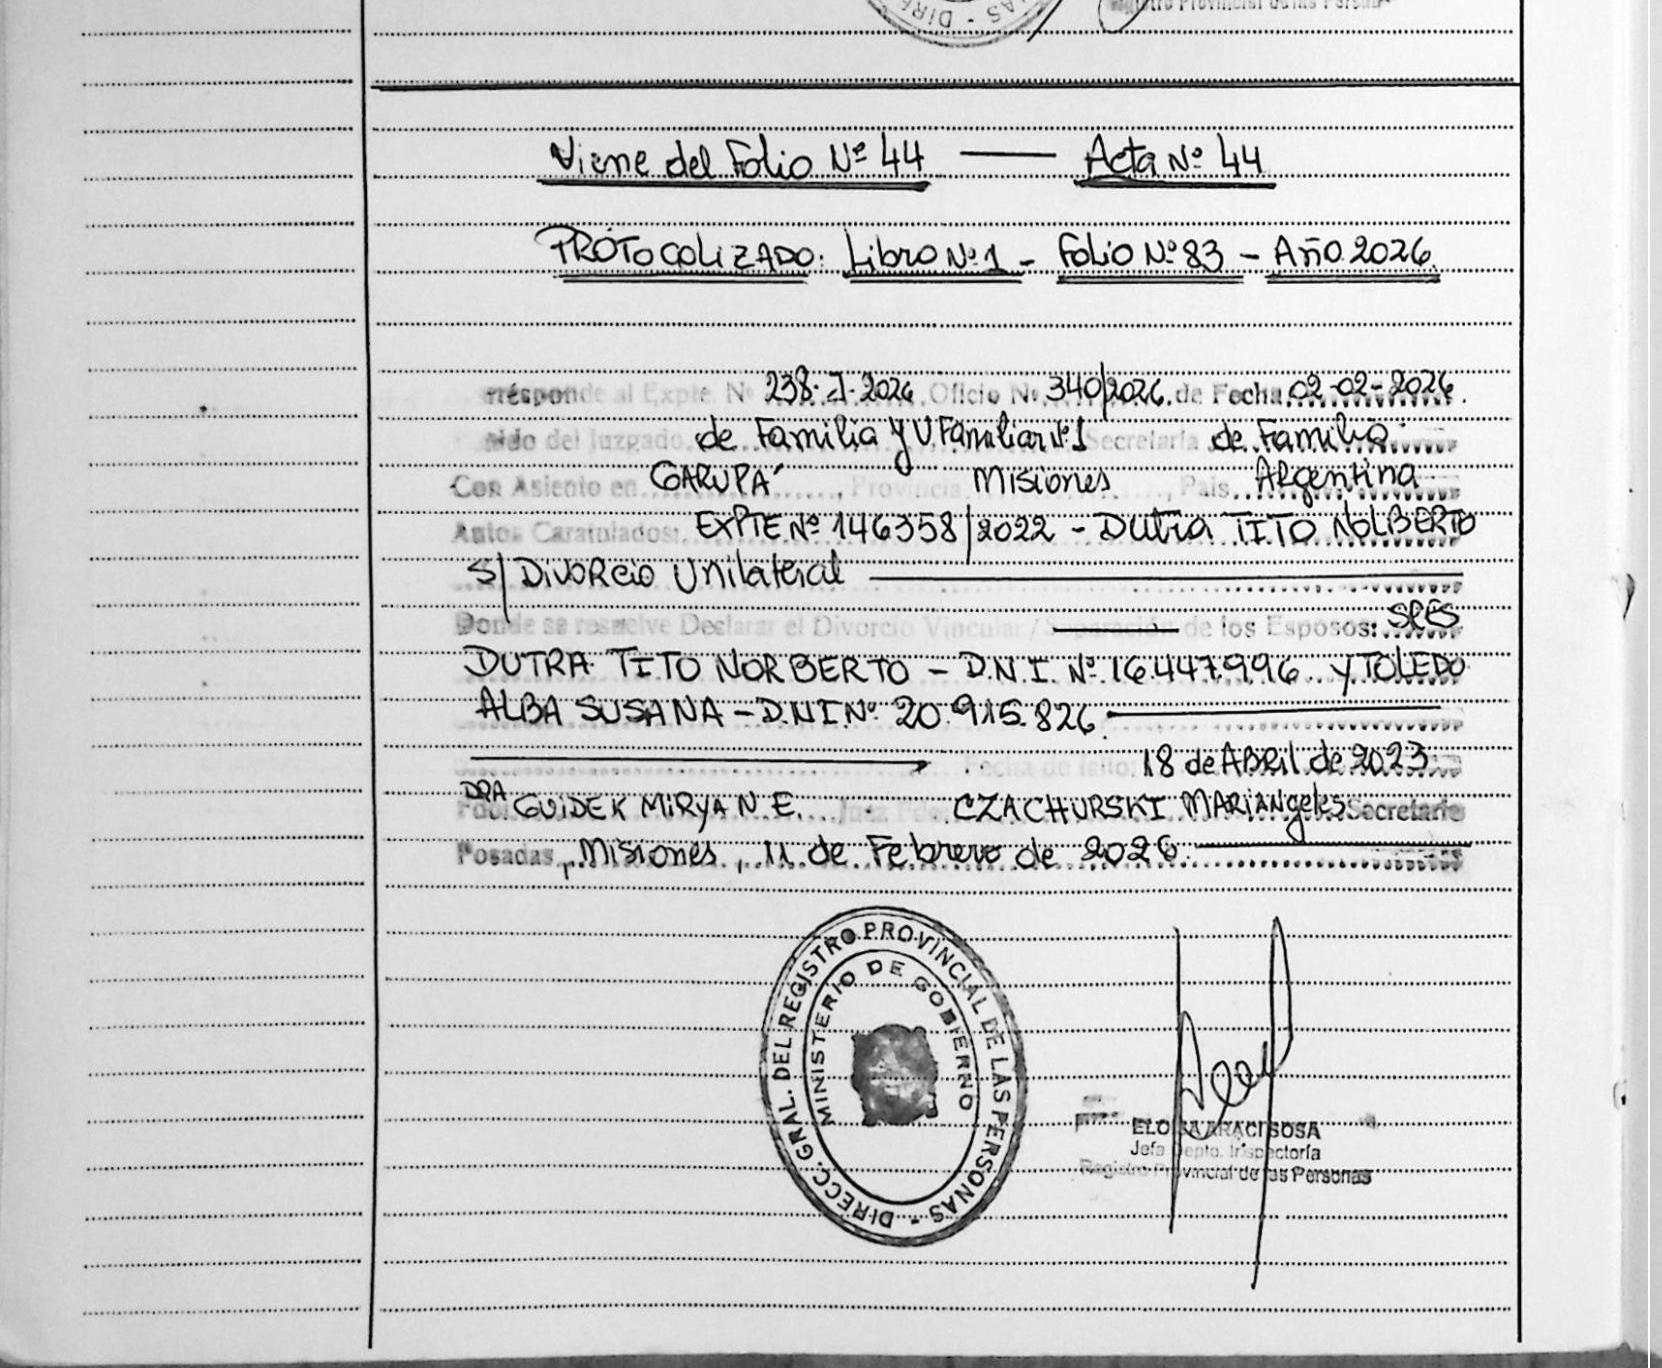 DIRE - NAS
Registro Provincial de las Personas
Viene del Folio Nº 44 —— Acta Nº 44
PROTOCOLIZADO: Libro Nº 1 - Folio Nº 83 - Año 2026.
rresponde al Expte. Nº 238-J-2026 Oficio Nº 340/2026 de Fecha 02-02-2026.
nido del Juzgado de Familia y V. Familiar Nº 1 Secretaría de Familia
Con Asiento en GARUPÁ, Provincia Misiones, País Argentina
Autos Caratulados: EXPTE Nº 146358/2022 - Dutra TITO NOLBERTO
S/ Divorcio Unilateral
Donde se resuelve Declarar el Divorcio Vincular / Separación de los Esposos: SRES
DUTRA TITO NORBERTO - D.N.I. Nº 16.447.996 y TOLEDO
ALBA SUSANA - D.N.I Nº 20.915.826
Fecha de fallo: 18 de Abril de 2023
DRA GUIDEK MIRYAN E. Juez CZACHURSKI MARIANgeles Secretario
Posadas, Misiones, 11 de Febrero de 2026.
DIRECC. GRAL. DEL REGISTRO PROVINCIAL DE LAS PERSONAS -
MINISTERIO DE GOBIERNO
ELOISA ARACI SOSA
Jefa Depto. Inspectoría
Registro Provincial de las Personas